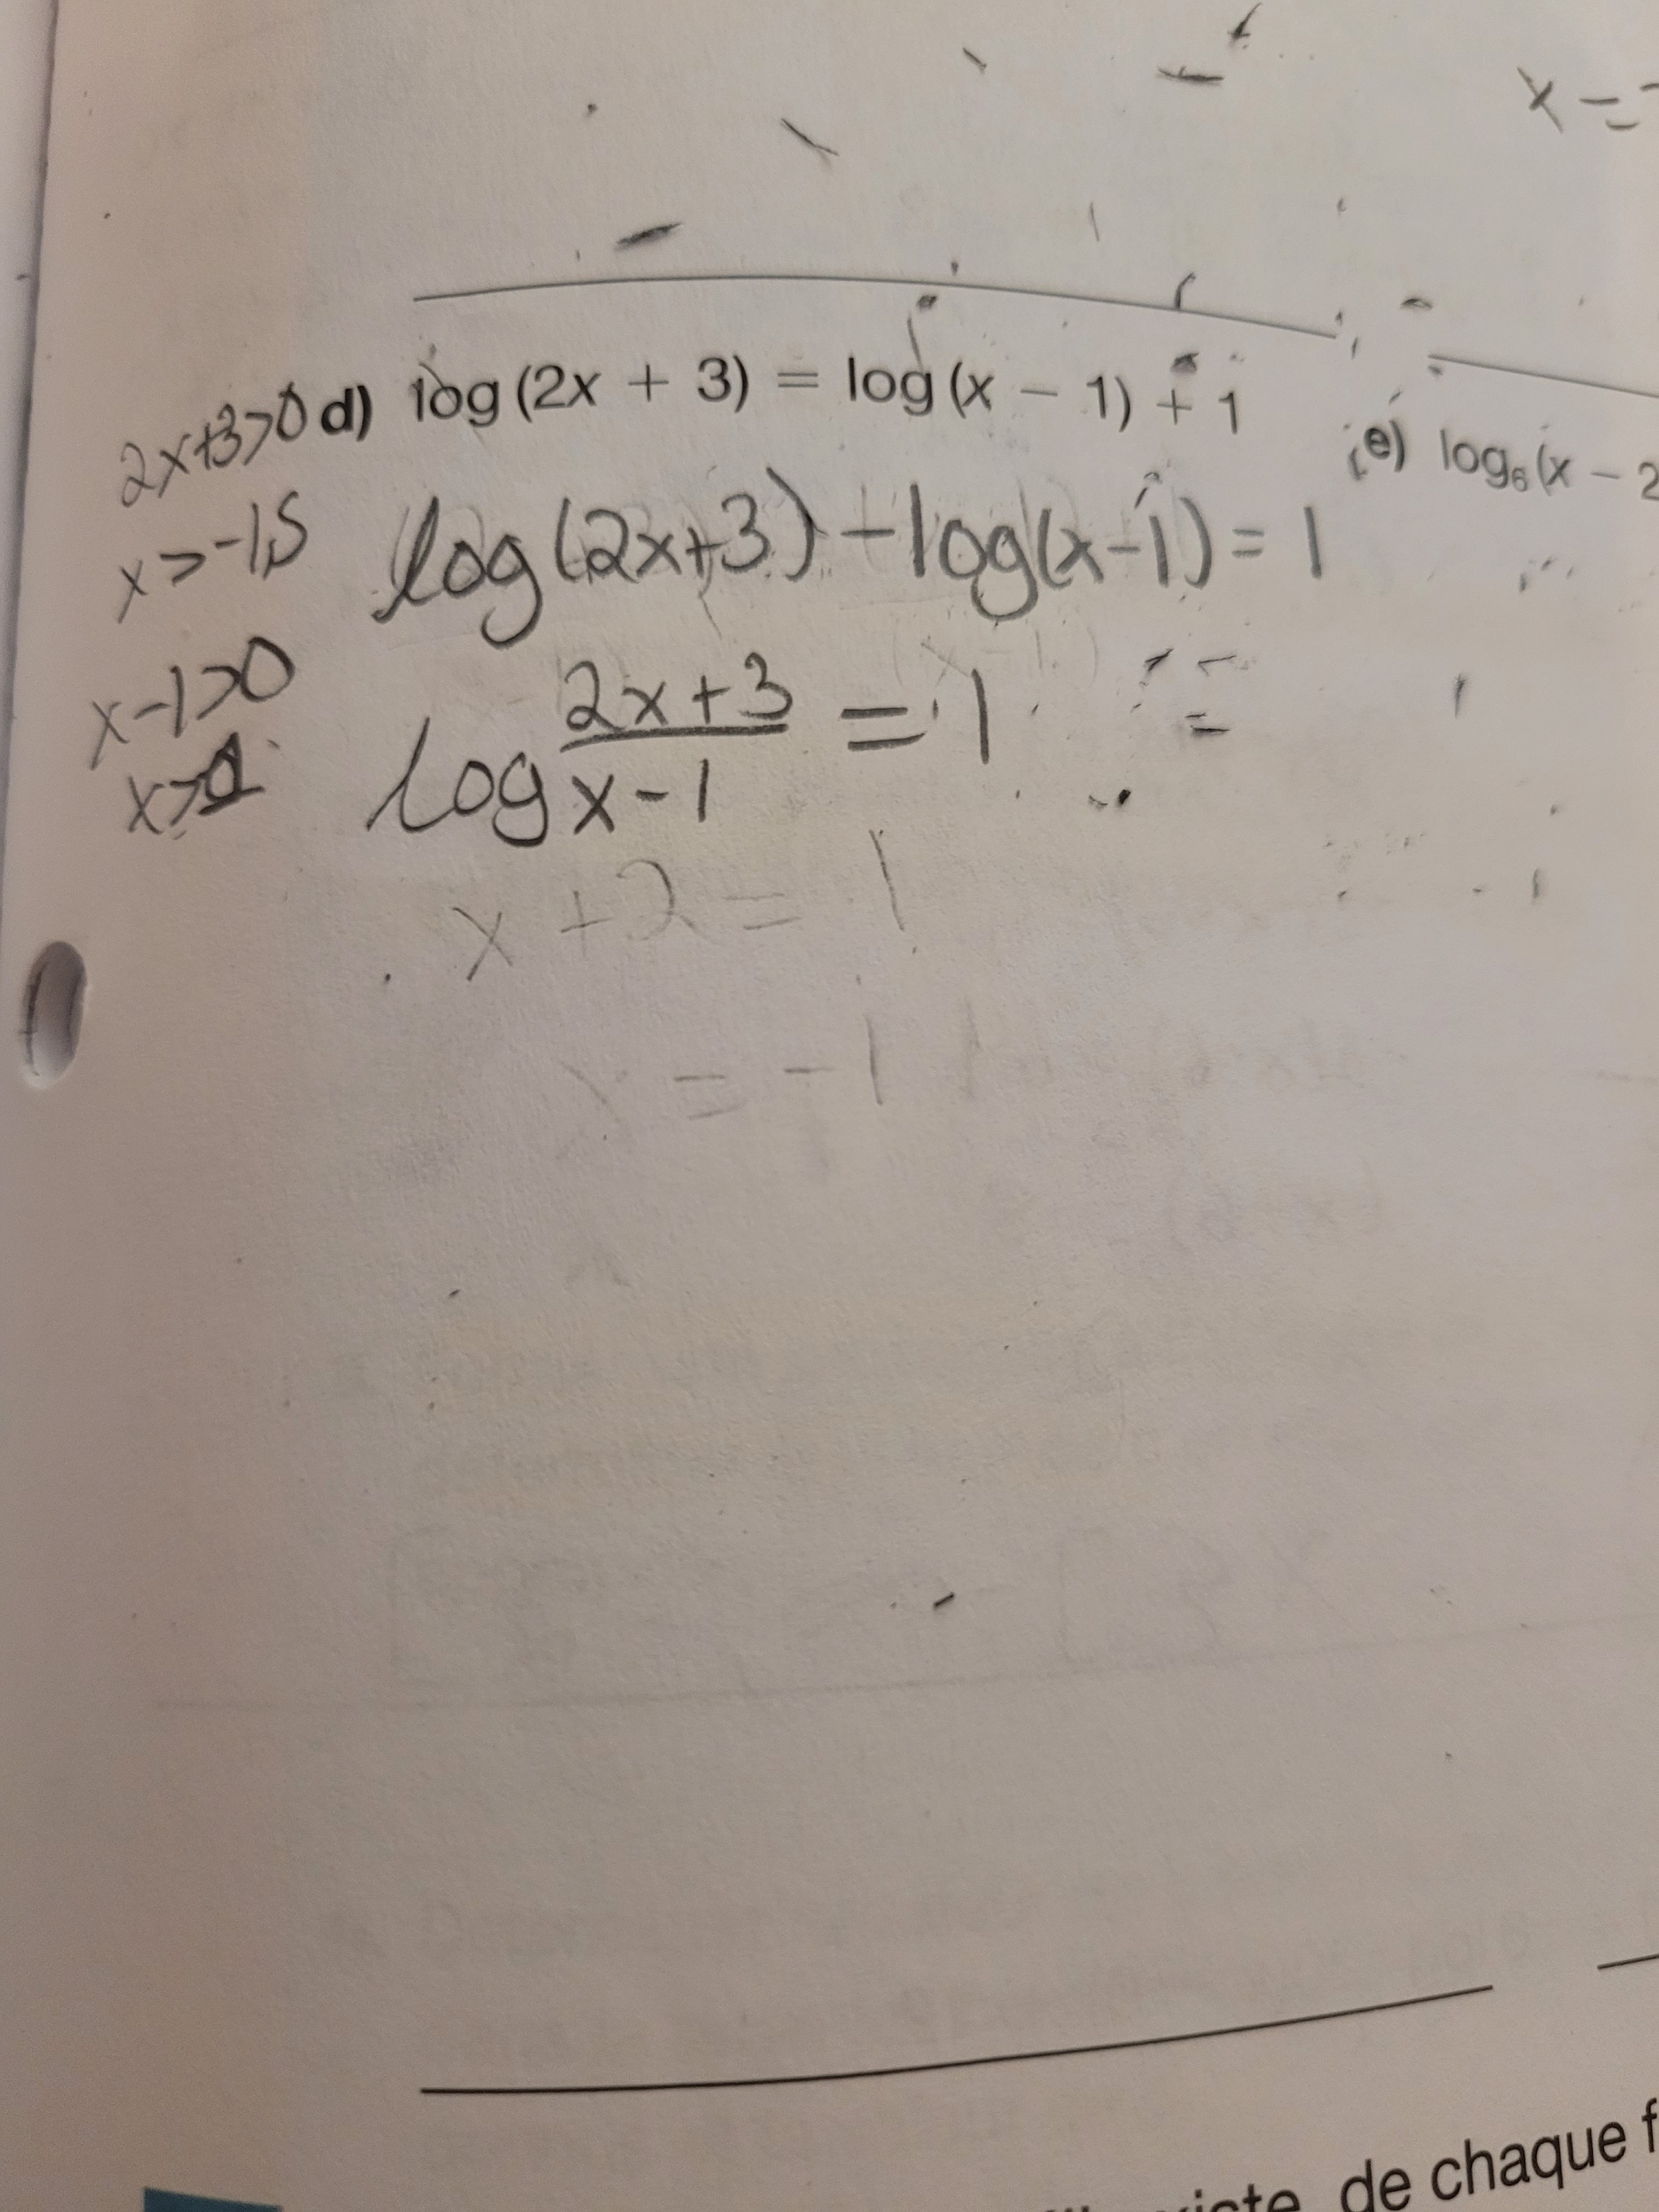 x =
d) log (2x + 3) = log (x − 1) + 1
2x+3>0
x > -1,5
x-1>0
x>1
log(2x+3) - log(x-1) = 1
log (2x+3)/(x-1) = 1
x + 2 = 1
x = -1
e) log₆ (x − 2
de chaque f